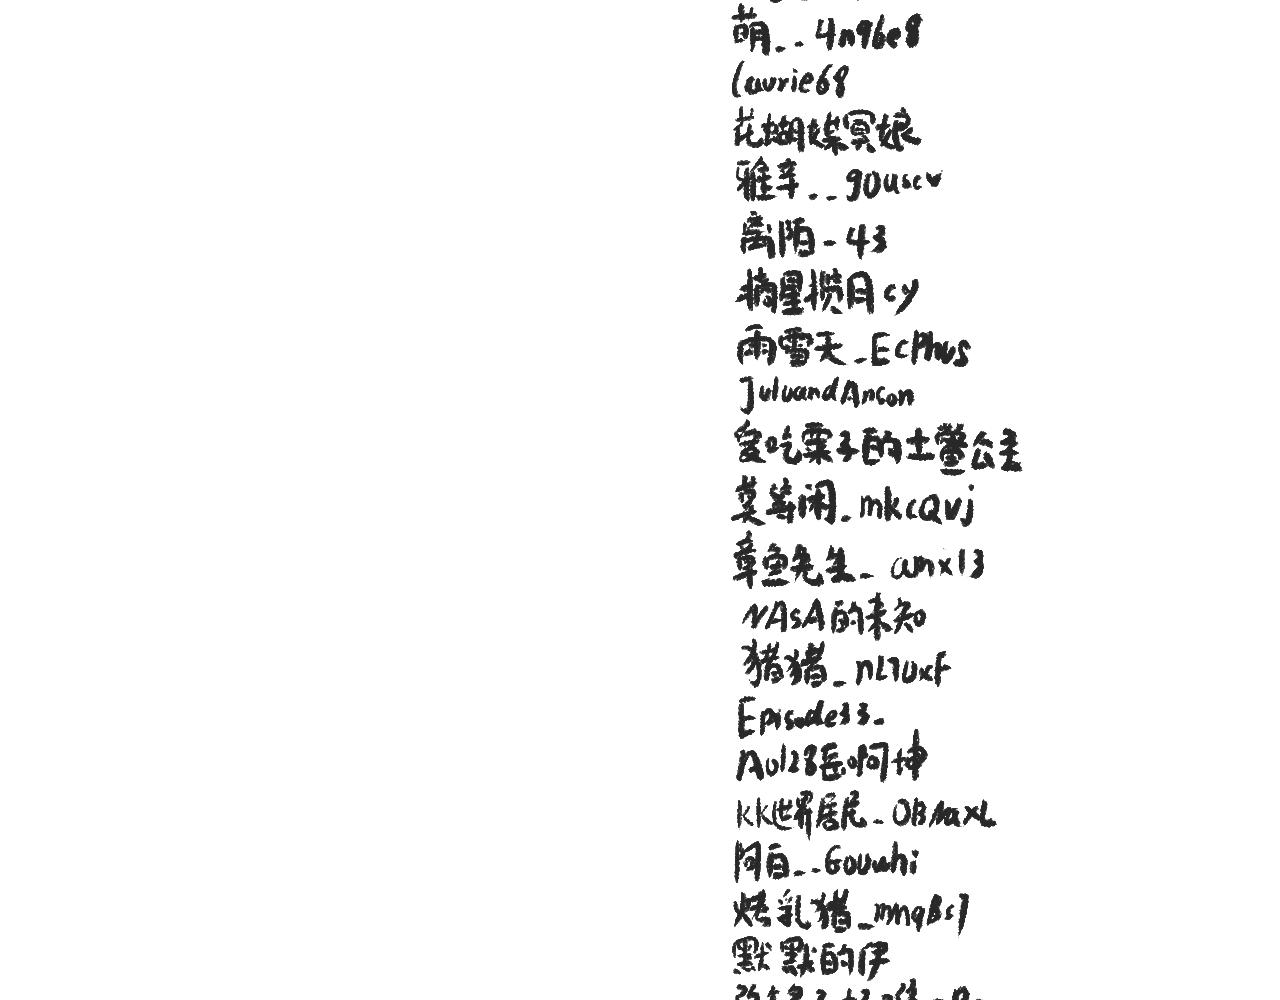 萌_ _4n96e8
Laurie68
花蝴蝶冥娘
雅辛_ _90uscv
离陌_43
摘星揽月cy
雨雪天_EcPhus
JuluandAnson
爱吃栗子的土鳖公主
莫等闲_mkcQvj
章鱼先生_amx13
NASA的未知
猪猪_nL7uxF
Episode33_
Aul28岳啊坤
kk世界居民_OBMaxL
阿白_ _Gouwhi
烤乳猪_mmqBs7
默默的伊